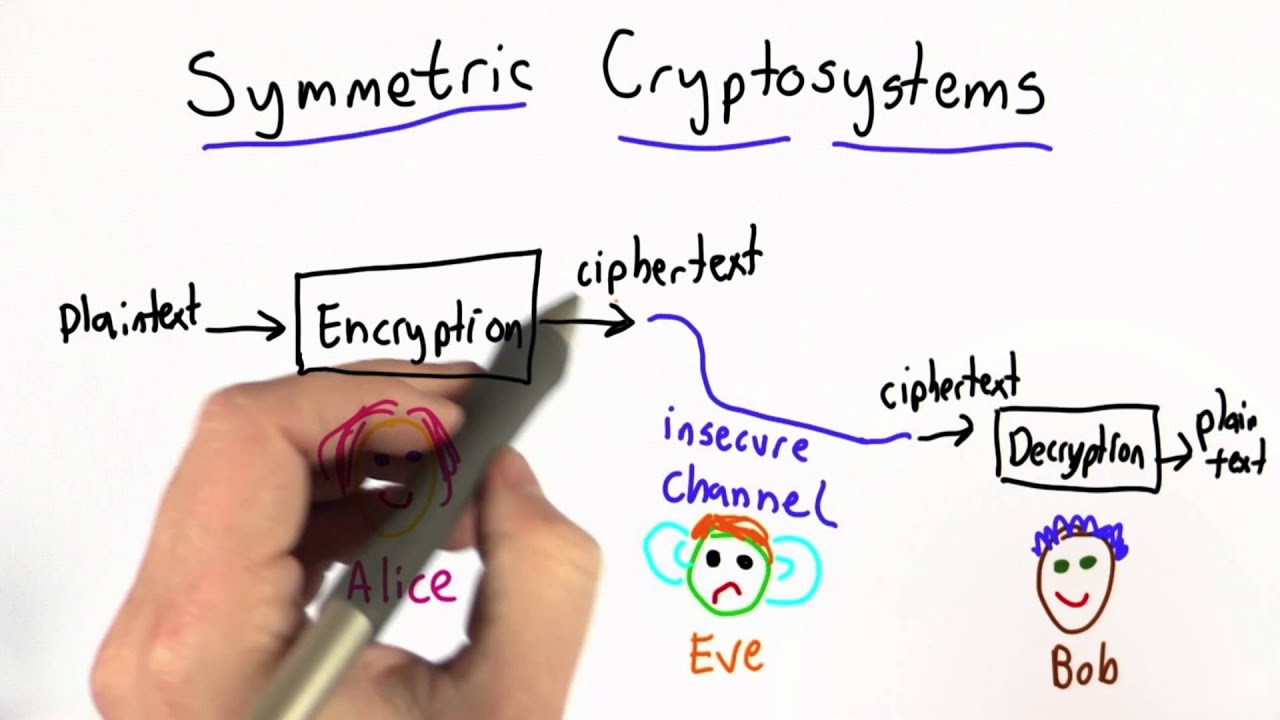 Symmetric Cryptosystems
plaintext
Encryption
ciphertext
insecure
channel
ciphertext
Decryption
plain
text
Alice
Eve
Bob